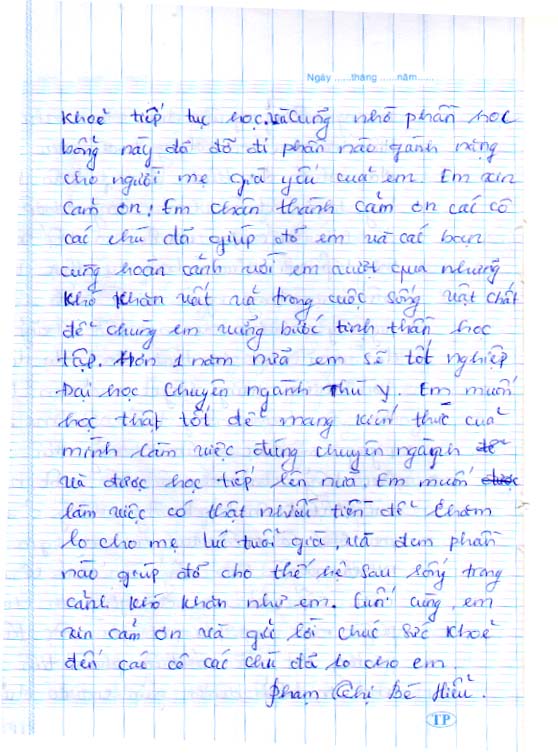 Ngày ......tháng ......năm......
khoẻ tiếp tục học, và cũng nhờ phần học
bổng này đã đỡ đi phần nào gánh nặng
cho người mẹ già yếu của em. Em xin
cảm ơn! Em chân thành cảm ơn các cô
các chú đã giúp đỡ em và các bạn
cùng hoàn cảnh với em vượt qua những
khó khăn vất vả trong cuộc sống vật chất
để chúng em vững bước tinh thần học
tập. Hơn 1 năm nữa em sẽ tốt nghiệp
Đại học chuyên ngành Thú y. Em muốn
học thật tốt để mang kiến thức của
mình làm việc đúng chuyên ngành
và được học tiếp lên nữa. Em muốn
làm việc có thật nhiều tiền để chăm
lo cho mẹ lúc tuổi già, và đem phần
nào giúp đỡ cho thế hệ sau sống trong
cảnh khó khăn như em. Cuối cùng, em
xin cảm ơn và gửi lời chúc sức khoẻ
đến các cô các chú đã lo cho em.
Phạm Thị Bé Hiếu.
TP